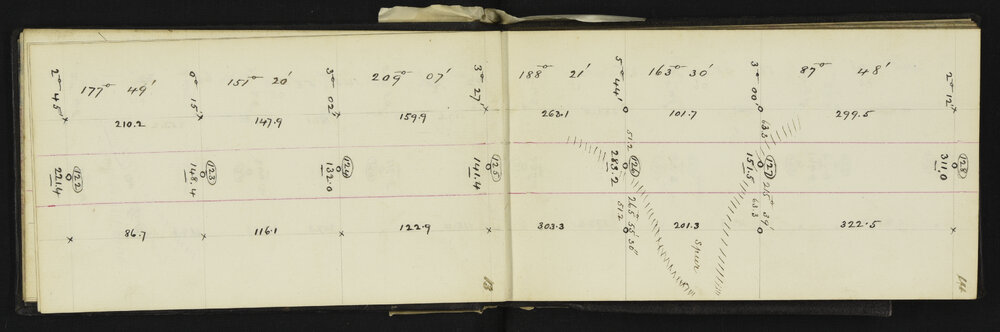 2° 45'
177° 49'
0° 15'
151° 20'
3° 02'
209° 07'
3° 27'
210.2
147.9
159.9
122
221.4
123
148.4
124
132.0
125
141.4
86.7
116.1
122.9
13
188° 21'
5° 44'
163° 30'
3° 00'
87° 48'
2° 12'
263.1
101.7
299.5
51.2
63.3
126
283.2
127
151.5
128
311.0
265° 55' 30"
51.2
215° 39'
63.3
303.3
201.3
322.5
Spur